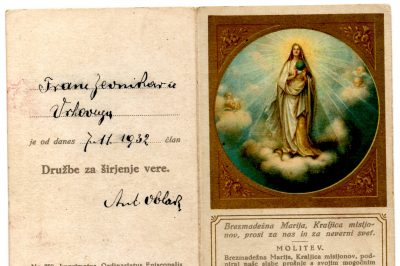 Franc Jevnikar iz
Vrhovega
je od danes 7. 11. 1932 član
Družbe za širjenje vere.
Ant. Oblak
Brezmadežna Marija, Kraljica misijo-
nov, prosi za nas in za neverni svet.
MOLITEV.
Brezmadežna Marija, Kraljica misijonov, pod-
piraj naše slabe prošnje s svojim mogočnim